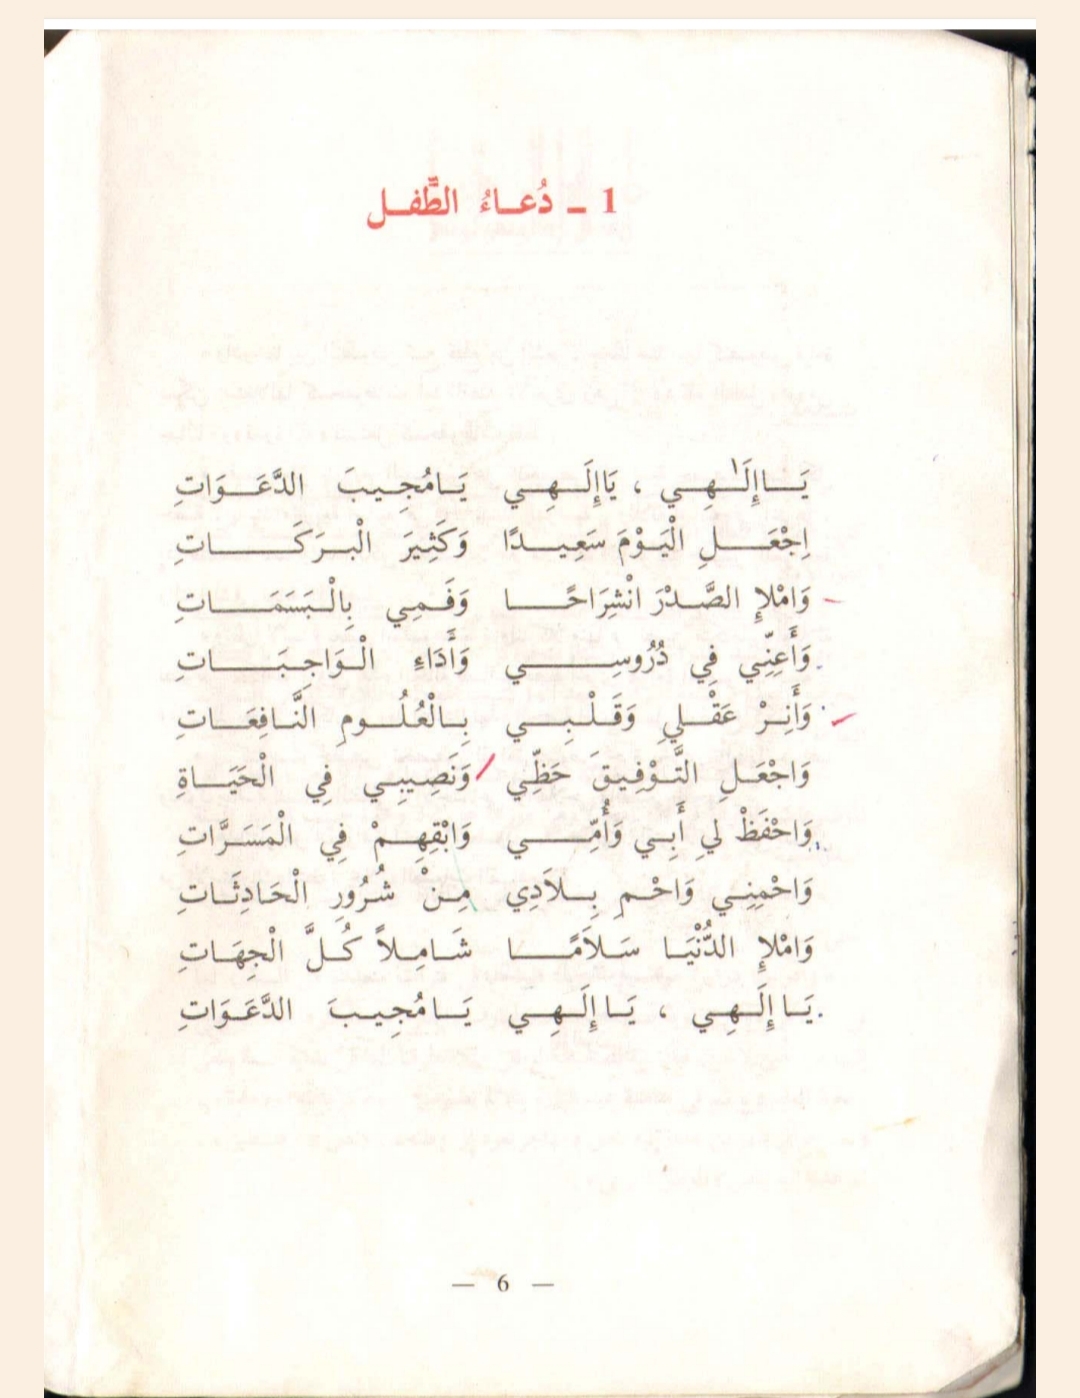 1 ـ دُعَاءُ الطِّفل
يَا إِلَهِي ، يَا إِلَهِي يَا مُجِيبَ الدَّعَوَاتِ
اِجْعَلِ الْيَوْمَ سَعِيدًا وَكَثِيرَ الْبَرَكَاتِ
وَامْلإِ الصَّدْرَ انْشِرَاحًا وَفَمِي بِالْبَسَمَاتِ
وَأَعِنِّي فِي دُرُوسِي وَأَدَاءِ الْوَاجِبَاتِ
وَأَنِرْ عَقْلِي وَقَلْبِي بِالْعُلُومِ النَّافِعَاتِ
وَاجْعَلِ التَّوْفِيقَ حَظِّي وَنَصِيبِي فِي الْحَيَاةِ
وَاحْفَظْ لِي أَبِي وَأُمِّي وَابْقِهِمْ فِي الْمَسَرَّاتِ
وَاحْمِنِي وَاحْمِ بِلاَدِي مِنْ شُرُورِ الْحَادِثَاتِ
وَامْلإِ الدُّنْيَا سَلاَمًا شَامِلاً كُلَّ الْجِهَاتِ
يَا إِلَهِي ، يَا إِلَهِي يَا مُجِيبَ الدَّعَوَاتِ
— 6 —